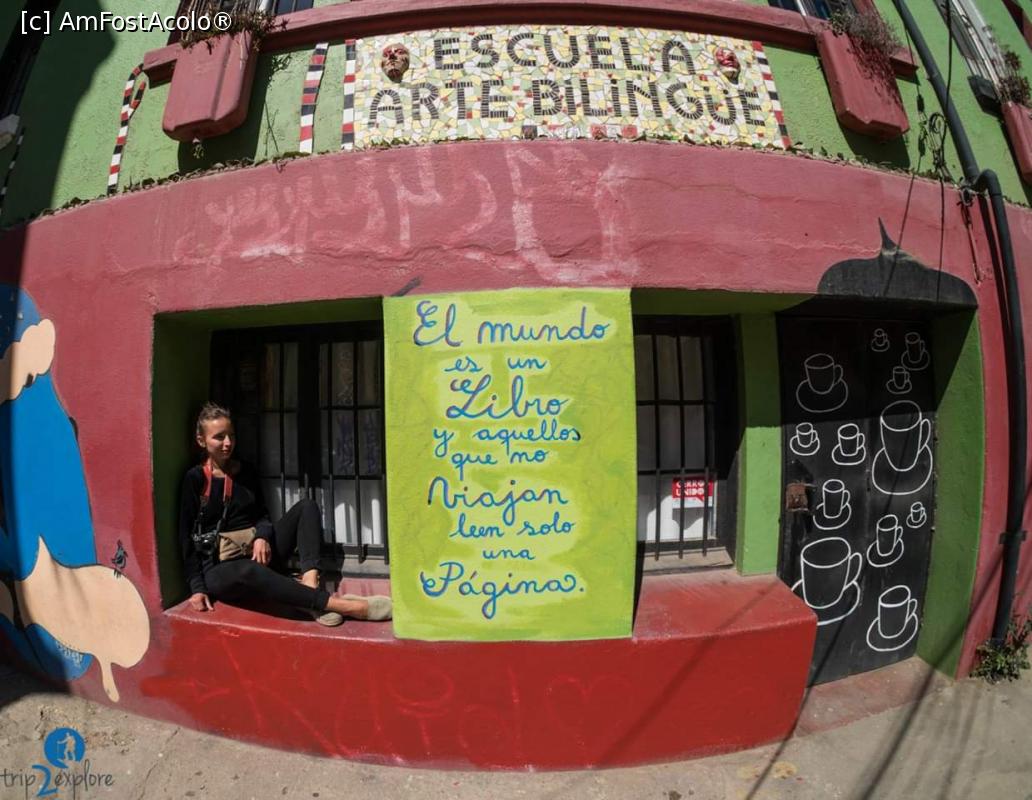 [c] AmFostAcolo®
ESCUELA
ARTE BILINGÜE
El mundo
es un
Libro
y aquellos
que no
Viajan
leen solo
una
Página.
trip2explore